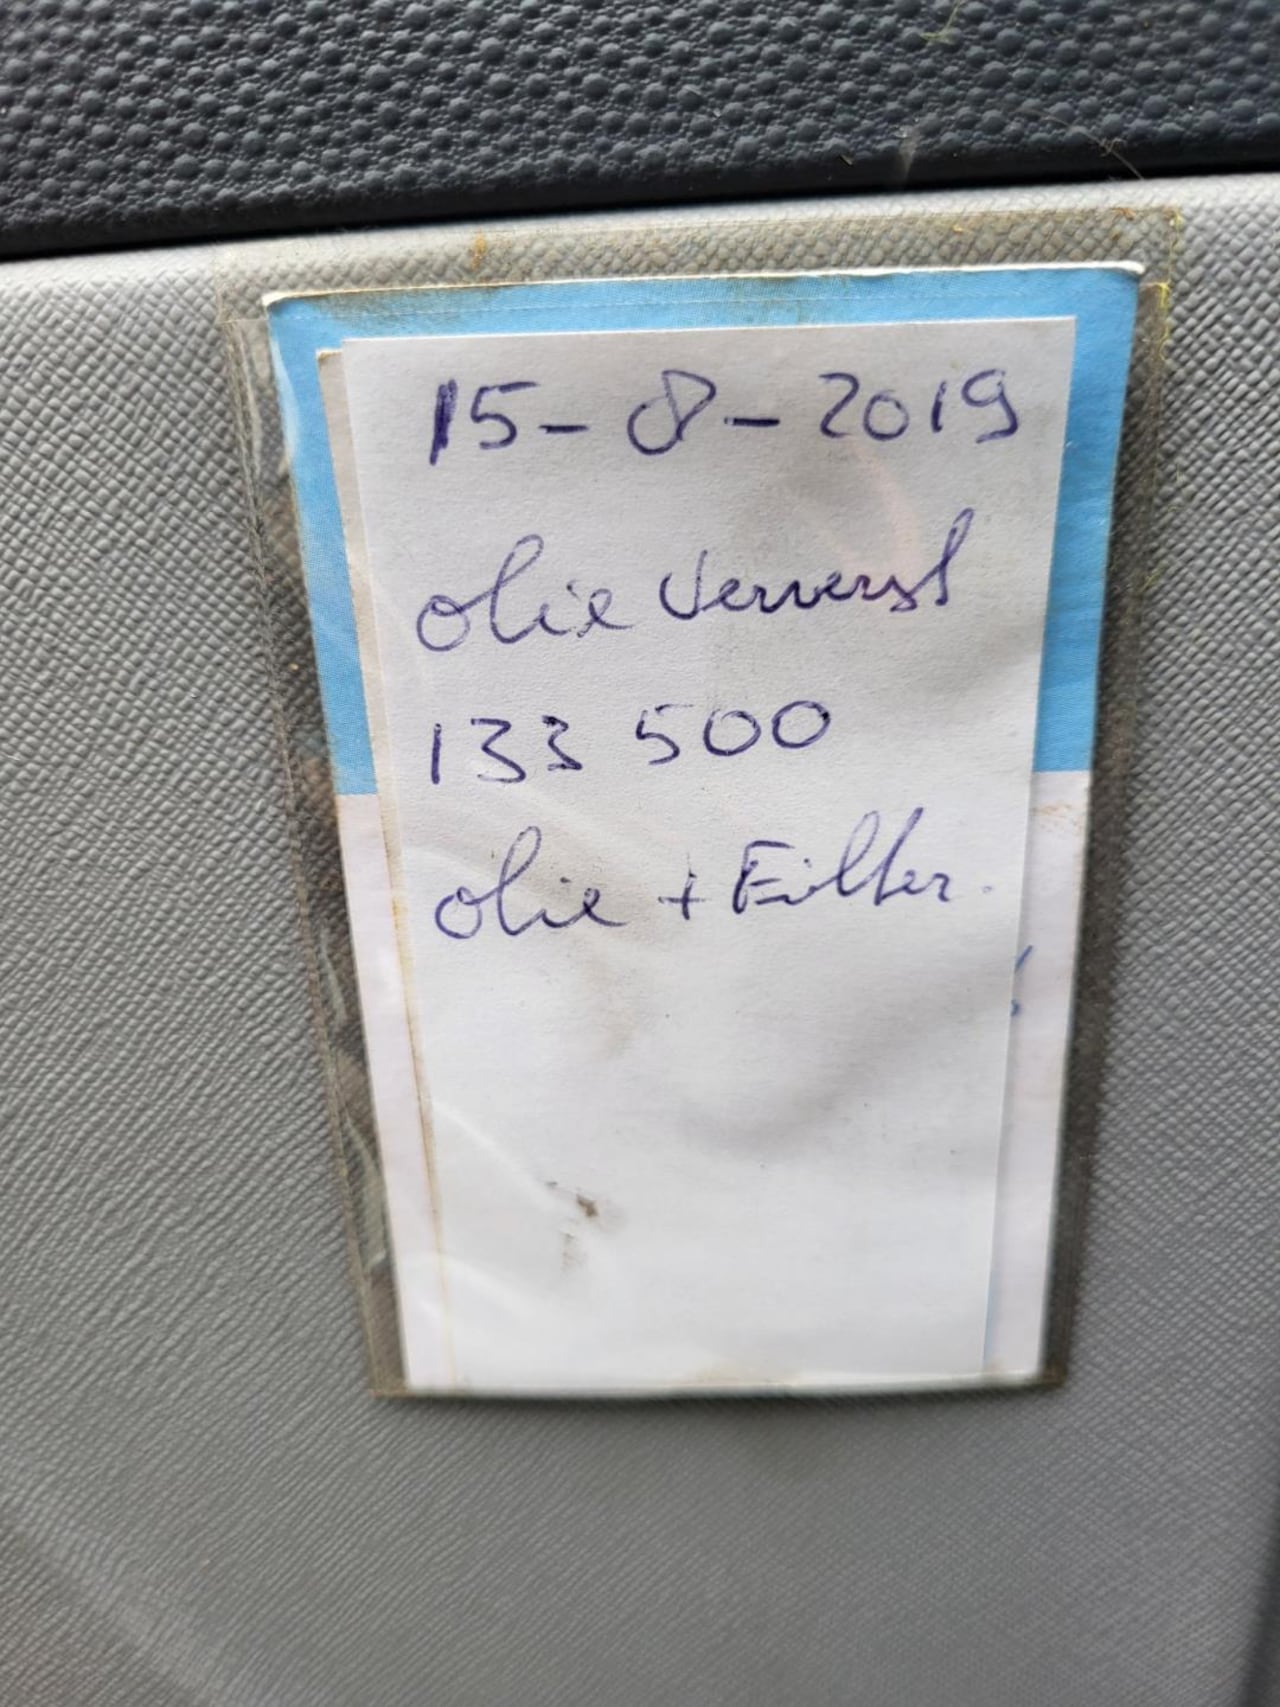 15-8-2019
olie ververst
133 500
olie + Filter.